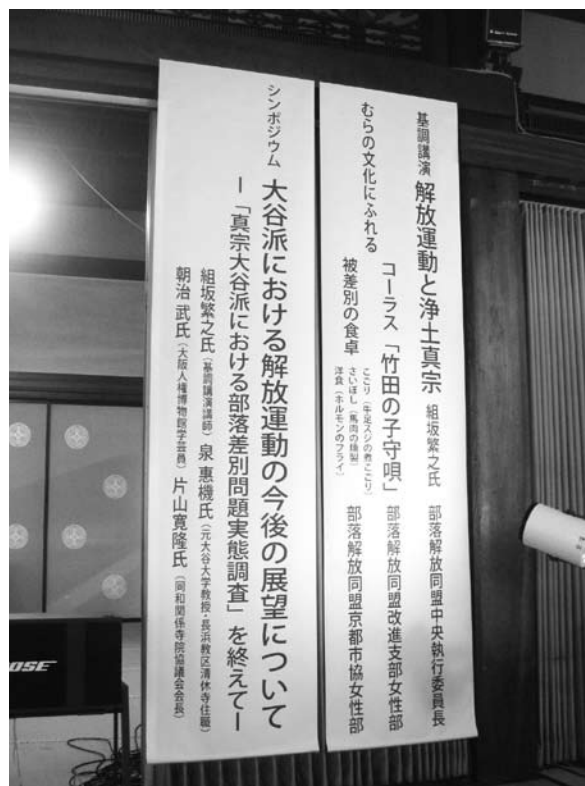 基調講演 解放運動と浄土真宗 組坂繁之氏 部落解放同盟中央執行委員長
むらの文化にふれる
コーラス「竹田の子守唄」 部落解放同盟改進支部女性部
被差別の食卓 部落解放同盟京都市協女性部
こごり(牛足スジの煮こごり)
さいぼし(馬肉の燻製)
洋食(ホルモンのフライ)
シンポジウム 大谷派における解放運動の今後の展望について
ー「真宗大谷派における部落差別問題実態調査」を終えてー
組坂繁之氏(基調講演講師) 泉 惠機氏(元大谷大学教授・長浜教区清休寺住職)
朝治 武氏(大阪人権博物館学芸員) 片山寛隆氏(同和関係寺院協議会会長)